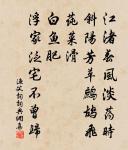 江渚春風淡蕩時
斜陽芳草鷓鴣飛
蓴菜滑
白魚肥
浮家泛宅不曾歸
漁父詞